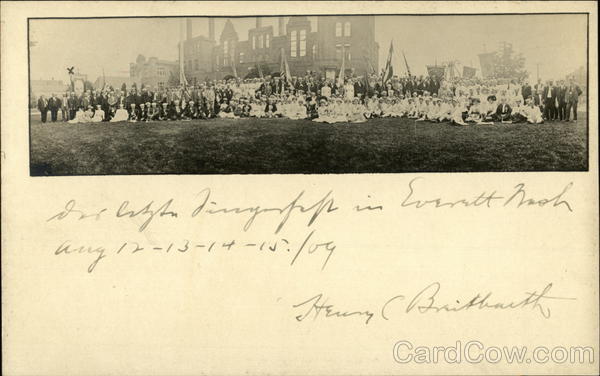 Das letzte Sängerfest in Everett Wash
Aug 12-13-14-15./09
Henry C Breitbarth
CardCow.com